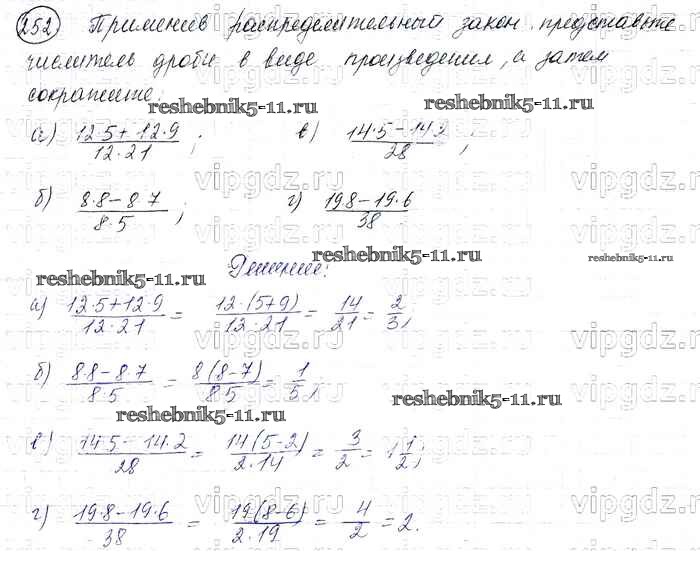 252 Применив распределительный закон представьте
числитель дроби в виде произведения, а затем
сократите:
reshebnik5-11.ru reshebnik5-11.ru
а) (12·5+12·9)/(12·21); в) (14·5−14·2)/28;
vipgdz.ru vipgdz.ru vipgdz.ru
б) (8·8−8·7)/(8·5); г) (19·8−19·6)/38
reshebnik5-11.ru reshebnik5-11.ru
Решение:
reshebnik5-11.ru
а) (12·5+12·9)/(12·21) = (12·(5+9))/(12·21) = 14/21 = 2/3;
vipgdz.ru vipgdz.ru vipgdz.ru
б) (8·8−8·7)/(8·5) = (8(8−7))/(8·5) = 1/5;
vipgdz.ru vipgdz.ru vipgdz.ru
reshebnik5-11.ru reshebnik5-11.ru
в) (14·5−14·2)/28 = (14(5−2))/(2·14) = 3/2 = 1 1/2;
vipgdz.ru vipgdz.ru vipgdz.ru
г) (19·8−19·6)/38 = (19(8−6))/(2·19) = 4/2 = 2.
vipgdz.ru vipgdz.ru vipgdz.ru